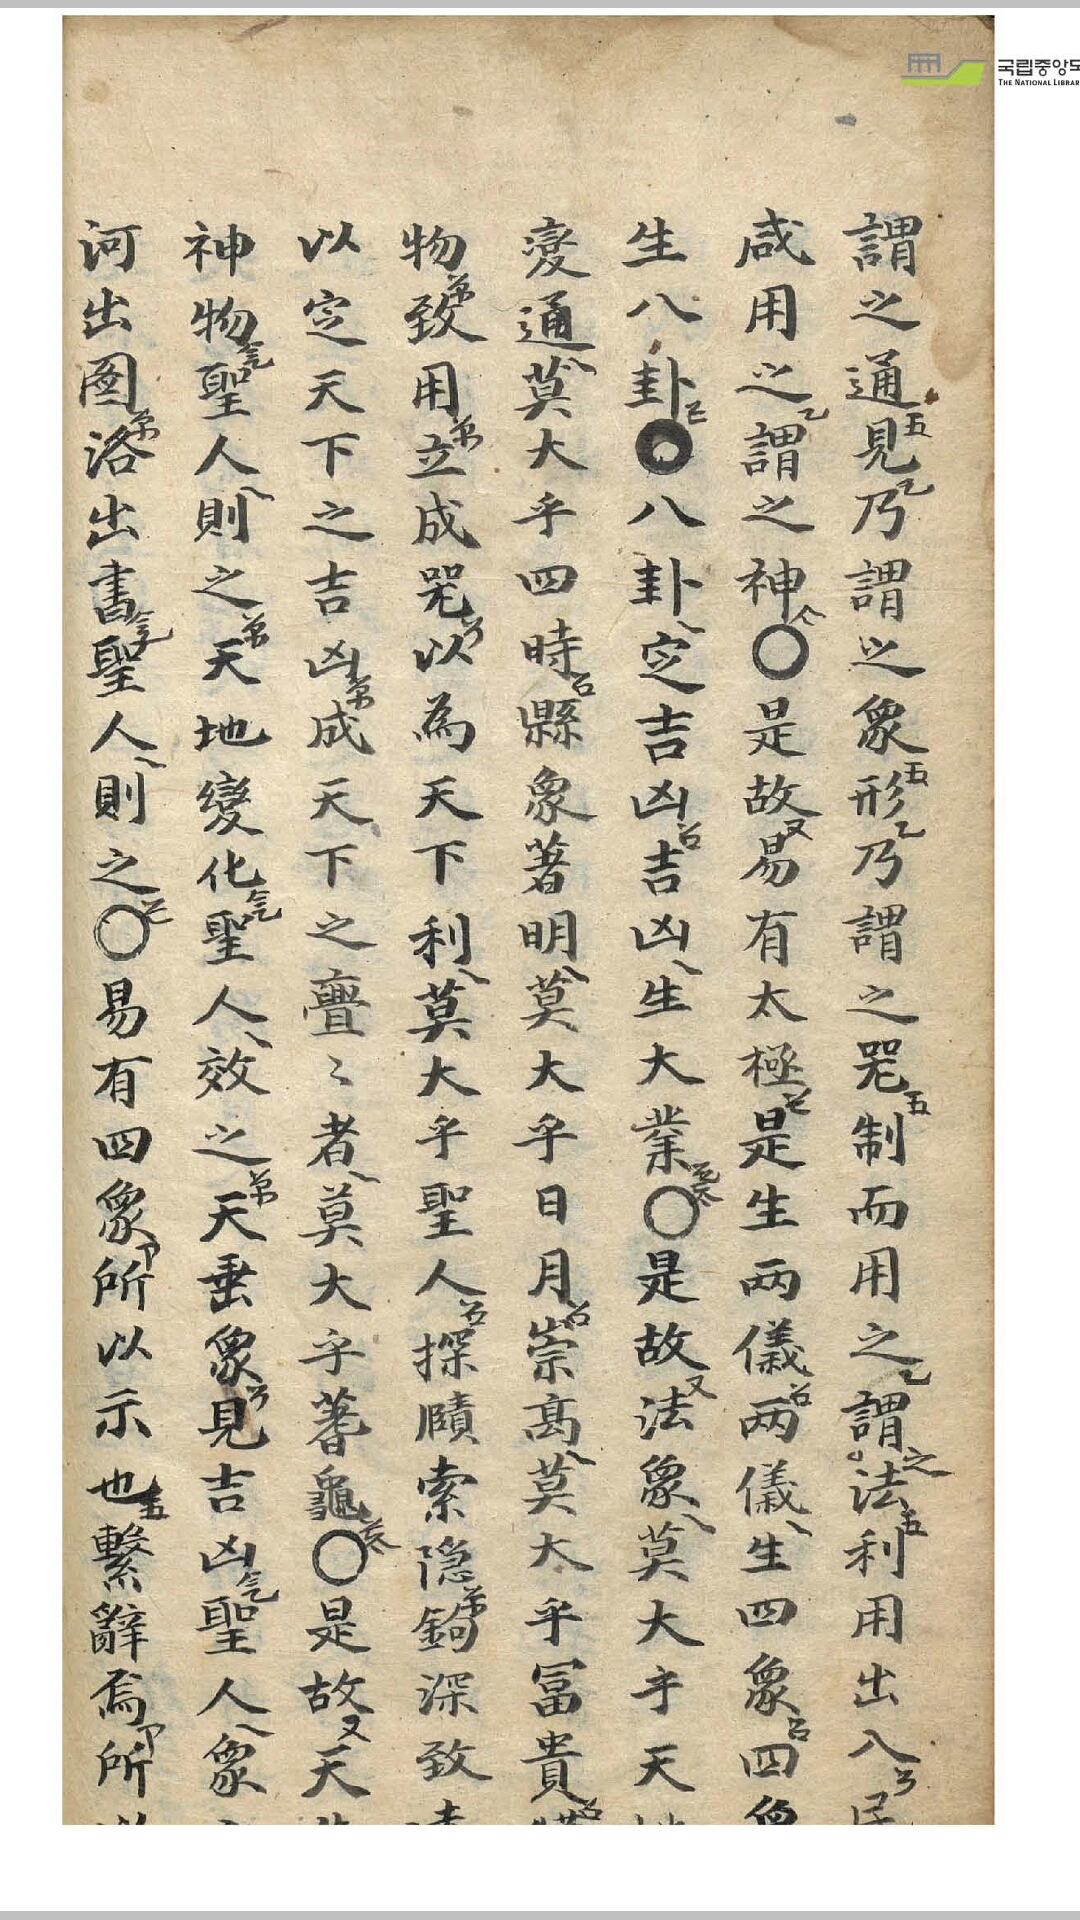 국립중앙도
THE NATIONAL LIBRAR
謂之通見乃謂之象形乃謂之噐制而用之謂之法利用出入民
咸用之謂之神〇是故易有太極是生兩儀兩儀生四象四象
生八卦〇八卦定吉凶吉凶生大業〇是故法象莫大乎天地
變通莫大乎四時縣象著明莫大乎日月崇高莫大乎冨貴備
物致用立成噐以為天下利莫大乎聖人探賾索隠鉤深致遠
以定天下之吉凶成天下之亹〻者莫大乎蓍龜〇是故天生
神物聖人則之天地變化聖人效之天垂象見吉凶聖人象之
河出図洛出書聖人則之〇易有四象所以示也繫辭焉所以